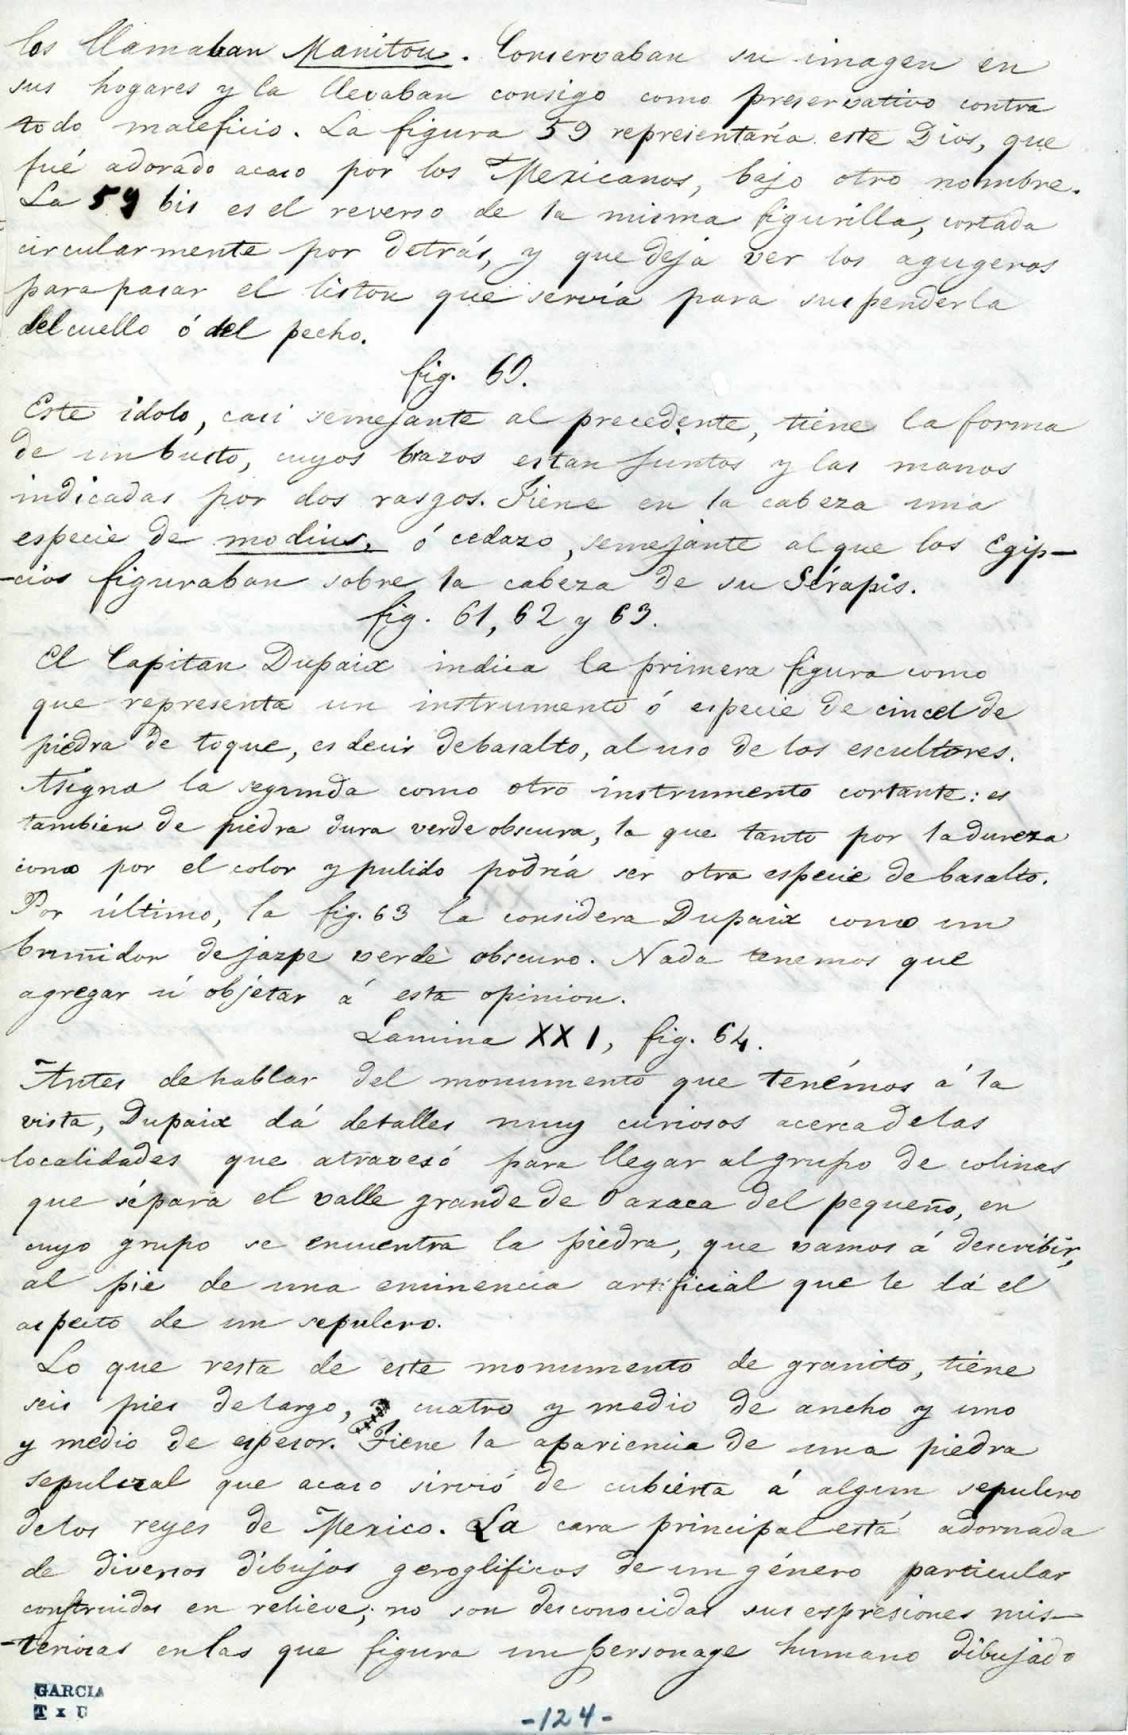 los llamaban Manitou. Conservaban su imagen en
sus hogares y la llevaban consigo como preservativo contra
todo maleficio. La figura 59 representaría este Dios, que
fué adorado acaso por los Mexicanos, bajo otro nombre.
La 59 bis es el reverso de la misma figurilla, cortada
circularmente por detrás, y que deja ver los agugeros
para pasar el liston que servía para suspenderla
del cuello ó del pecho.
fig. 60.
Este idolo, casi semejante al precedente, tiene la forma
de un busto, cuyos brazos estan juntos y las manos
indicadas por dos rasgos. Tiene en la cabeza una
especie de modius, ó cedazo, semejante al que los Egip-
-cios figuraban sobre la cabeza de su Sérapis.
fig. 61, 62 y 63.
El Capitan Dupaix indica la primera figura como
que representa un instrumento ó especie de cincel de
piedra de toque, es decir de basalto, al uso de los escultores.
Asigna la segunda como otro instrumento cortante: es
tambien de piedra dura verde obscura, la que tanto por la dureza
como por el color y pulido podría ser otra especie de basalto.
Por último, la fig. 63 la considera Dupaix como un
bruñidor de jazpe verde obscuro. Nada tenemos que
agregar ú objetar á esta opinion.
Lamina XXI, fig. 64.
Antes de hablar del monumento que tenémos á la
vista, Dupaix dá detalles muy curiosos acerca de las
localidades que atravesó para llegar al grupo de colinas
que sépara el valle grande de Oaxaca del pequeño, en
cuyo grupo se encuentra la piedra, que vamos á describir,
al pie de una eminencia artificial que le dá el
aspecto de un sepulcro.
Lo que resta de este monumento de granito, tiene
seis pies de largo, cuatro y medio de ancho y uno
y medio de espesor. Tiene la apariencia de una piedra
sepulcral que acaso sirvió de cubierta á algun sepulcro
de los reyes de Mexico. La cara principal está adornada
de diversos dibujos geroglificos de un género particular
construidos en relieve; no son desconocidas sus espresiones mis-
-teriosas en las que figura un personage humano dibujado
GARCIA
-124-